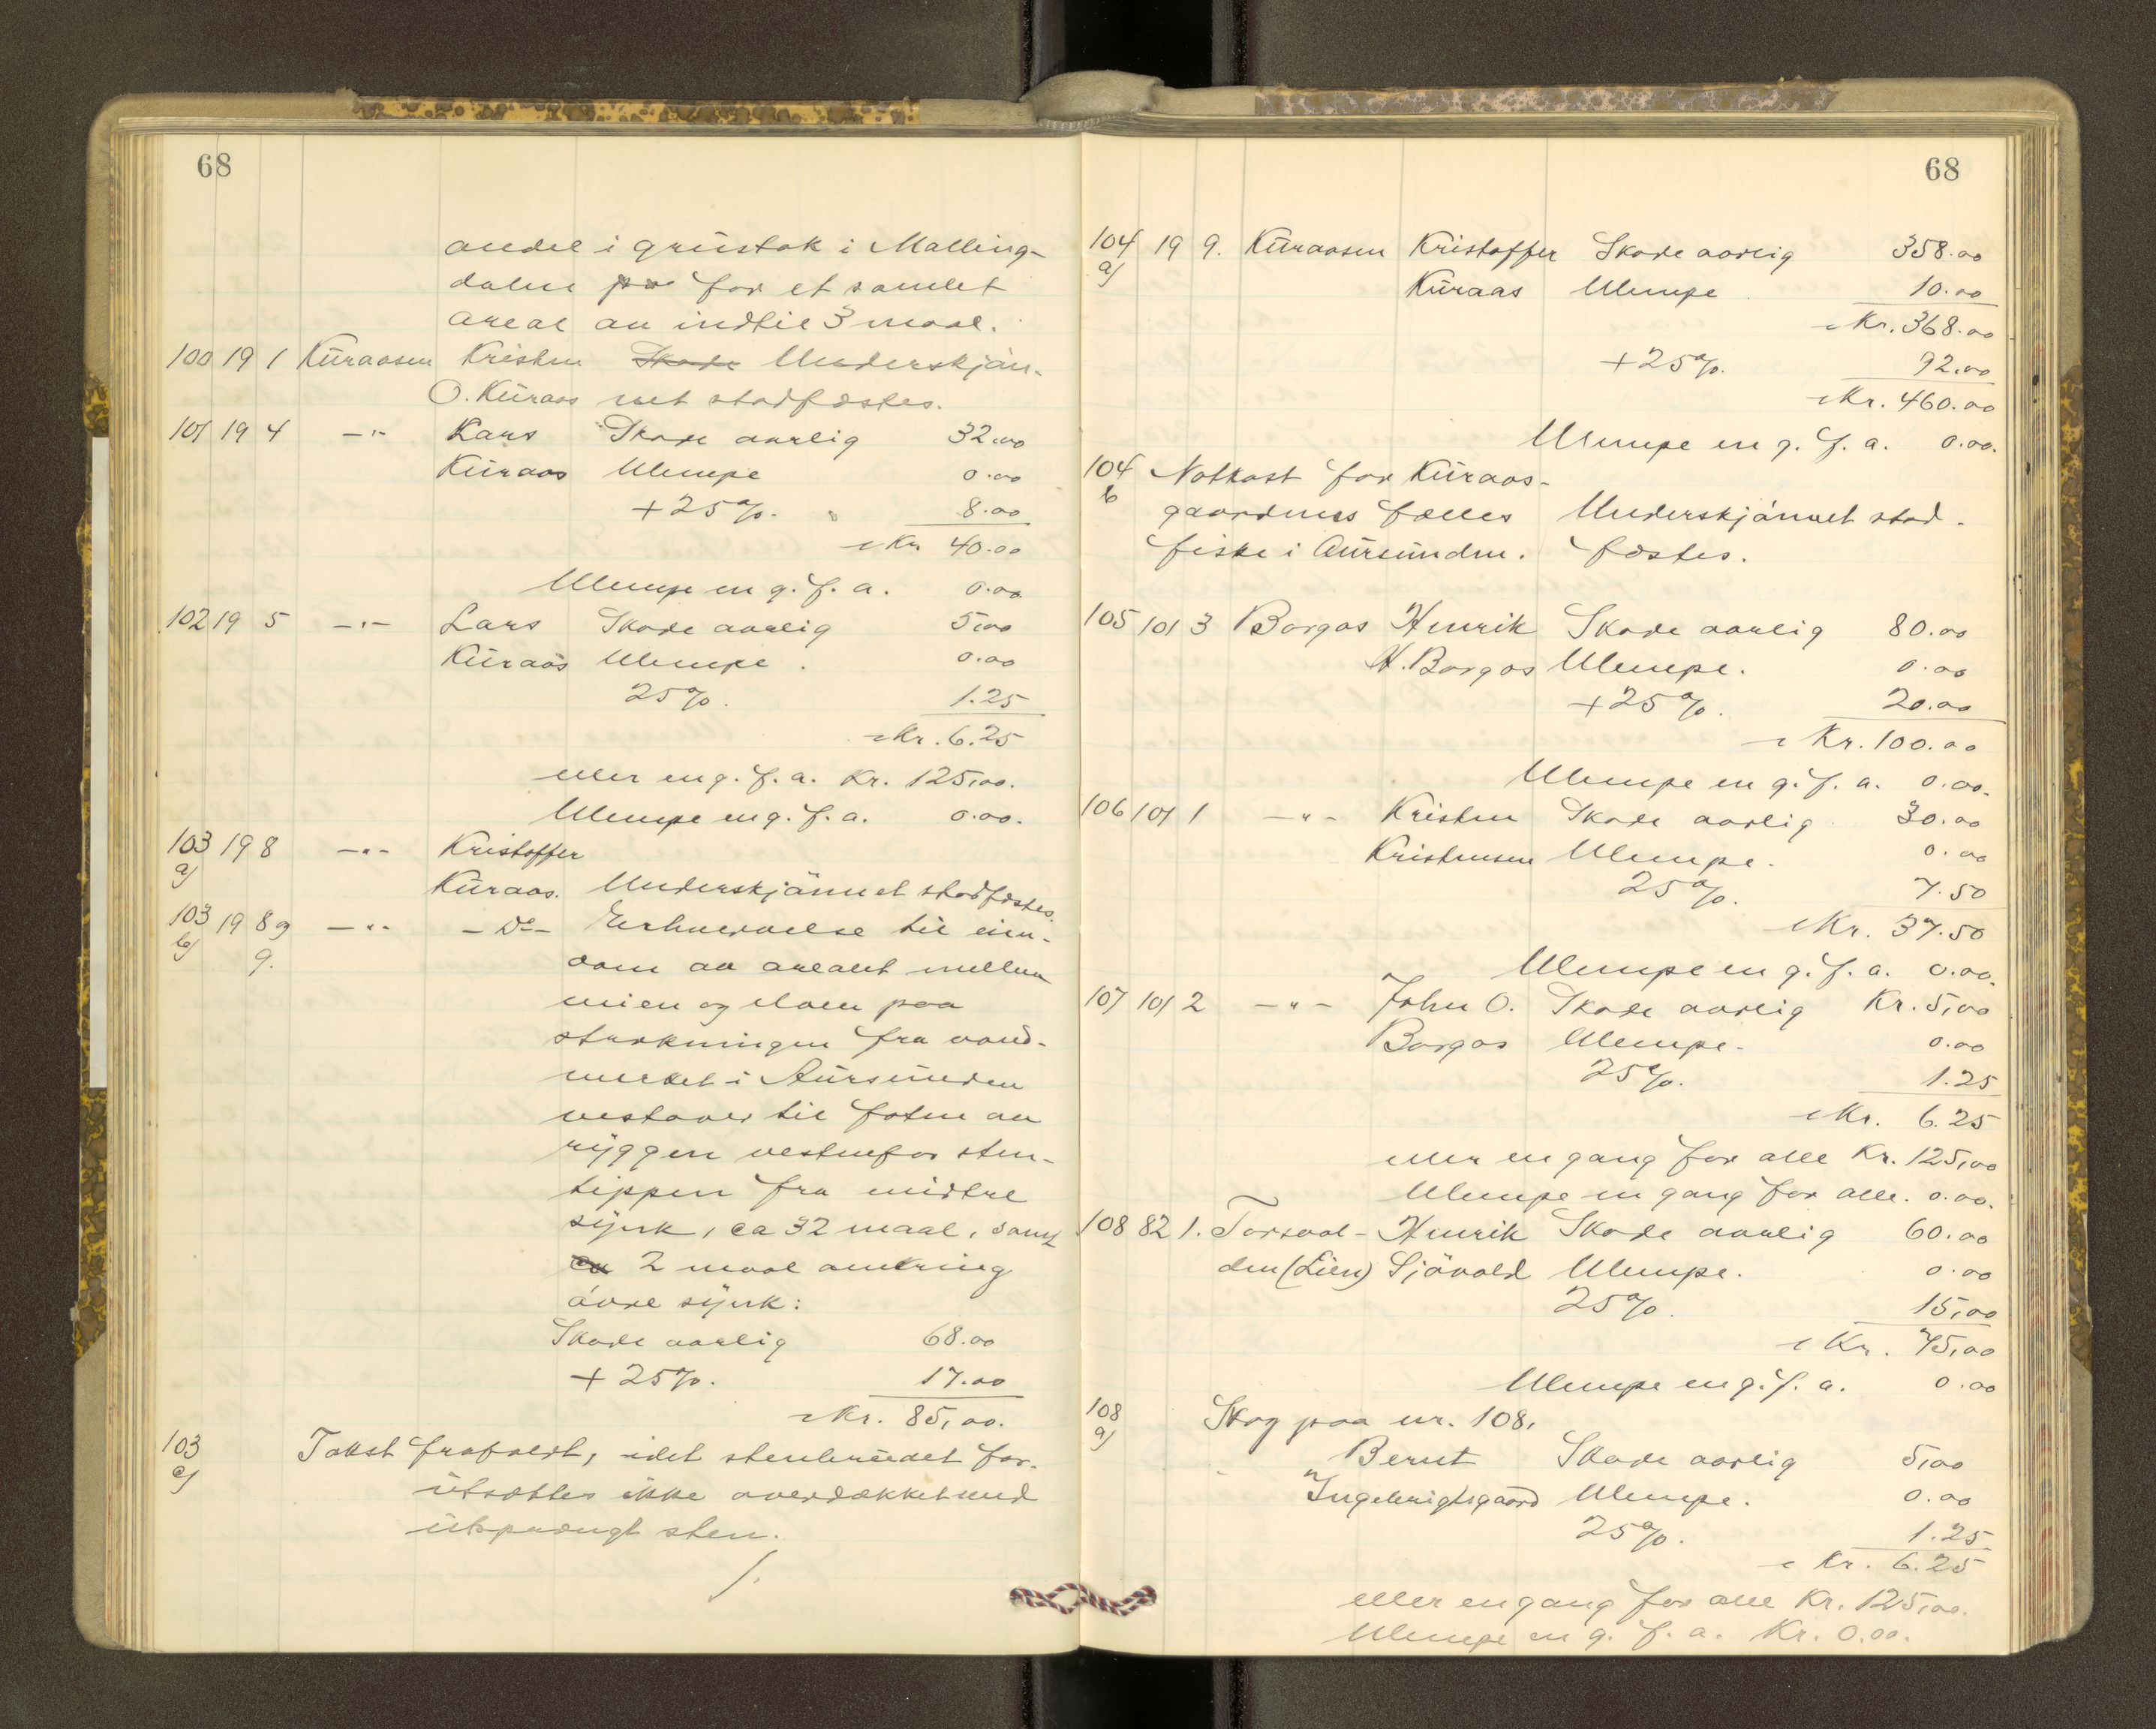 68
andel i grustak i Malling-
dalen for et samlet
areal av indtil 3 maal.
100 19 1 Kuraasen Kristen Skade Underskjön-
O. Kuraas net stadfæstes.
101 19 4 -"- Lars Skade aarlig 32.00
Kuraas Ulempe 0.00
+ 25% 8.00
Kr. 40.00
Ulempe en g. f. a. 0.00
102 19 5 -"- Lars Skade aarlig 5,00
Kuraas Ulempe . 0.00
25%. 1.25
Kr. 6.25
eller en g. f. a. Kr. 125,00.
Ulempe en g. f. a. 0.00.
103 19 8 -"- Kristoffer
a/
Kuraas. Underskjönnet stadfæstes.
103 19 8 og -"- - Do - Erhvervelse til eien-
b/ 9. dom av arealet mellem
veien og elven paa
strækningen fra vand-
merket i Aursunden
vestover til foten av
ryggen vestenfor sten-
tippen fra midtre
synk, ca 32 maal, samt
ca 2 maal omkring
övre synk:
Skade aarlig 68.00
+ 25%. 17.00
Kr. 85,00.
103 Takst frafaldt, idet stenbruddet for-
c/ utsættes ikke overdækket med
utsprængt sten.
/.
68
104 19 9. Kuraasen Kristoffer Skade aarlig 358.00
a/ Kuraas Ulempe 10.00
Kr. 368.00
+ 25%. 92.00
Kr. 460.00
Ulempe en g. f. a. 0.00.
104 Notkast for Kuraas-
b gaardenes fælles Underskjönnet stad-
fiske i Aursunden. fæstes.
105 101 3 Borgos Henrik Skade aarlig 80.00
H. Borgos Ulempe. 0.00
+ 25%. 20.00
Kr. 100.00
Ulempe en g. f. a. 0.00.
106 101 1 -"- Kristen Skade aarlig 30.00
Kristensen Ulempe. 0.00
25%. 7.50
Kr. 37.50
Ulempe en g. f. a. 0.00.
107 101 2 -"- John O. Skade aarlig Kr. 5,00
Borgos Ulempe. 0.00
25%. 1.25
Kr. 6.25
eller en gang for alle Kr. 125,00
Ulempe en gang for alle. 0.00.
108 82 1. Torsvol- Henrik Skade aarlig 60.00
den (Lien) Sjövold Ulempe. 0.00
25%. 15,00
Kr. 75,00
Ulempe en g. f. a. 0.00
108 Skog paa nr. 108,
a/ Bernt Skade aarlig 5,00
Ingebrigtsgaard Ulempe. 0.00
25%. 1.25
Kr. 6.25
eller en gang for alle Kr. 125,00.
Ulempe en g. f. a. Kr. 0.00.